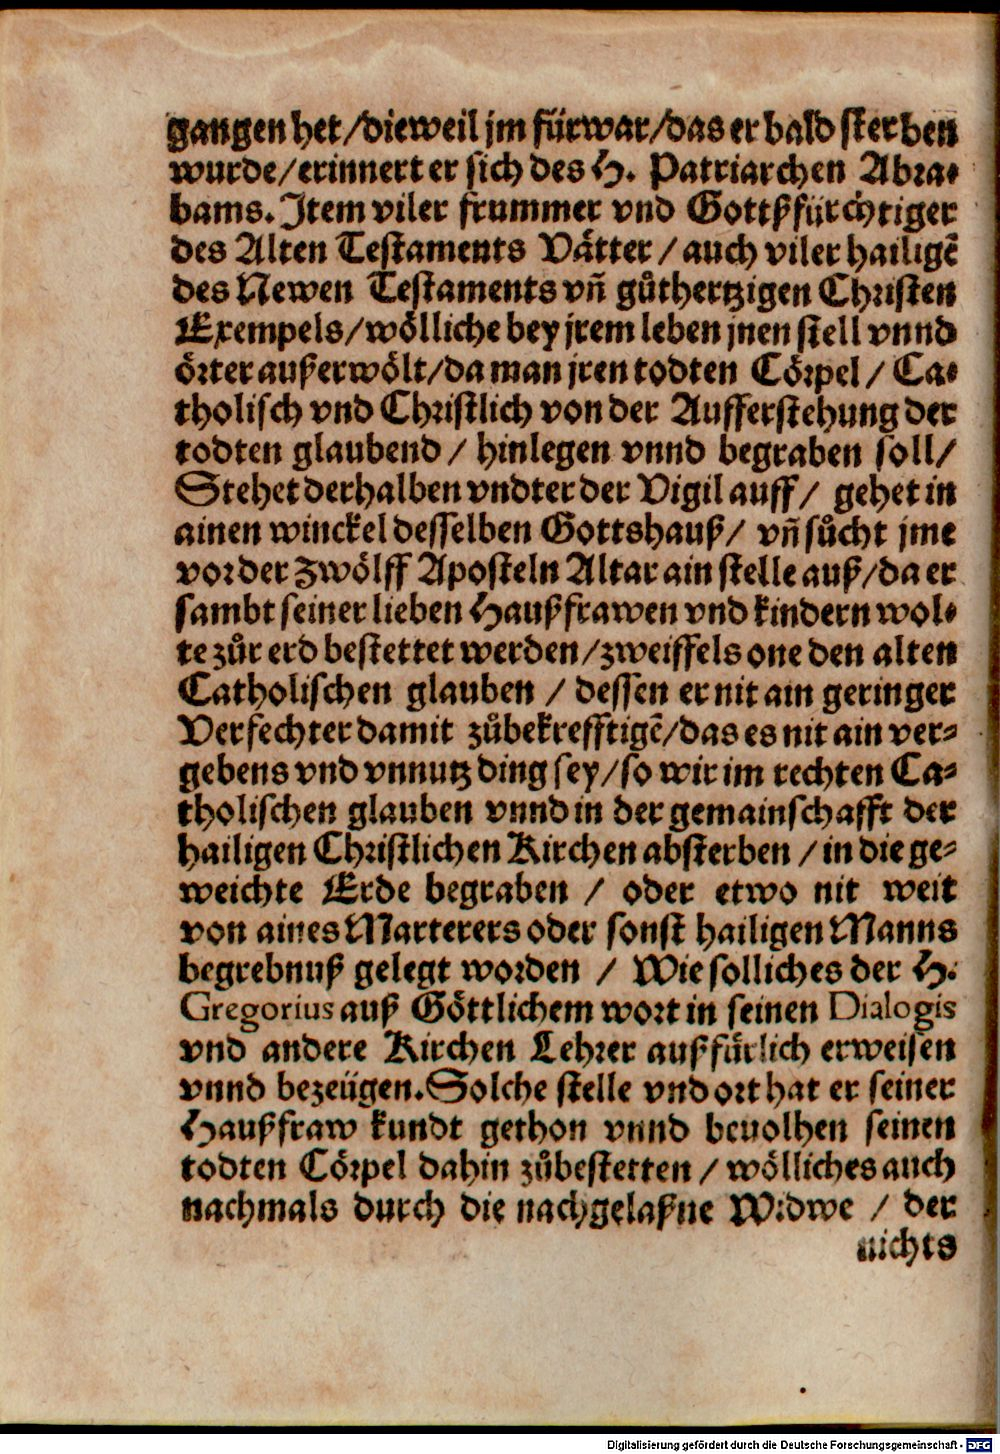 gangen het/dieweil jm fürwar/das er bald sterben
wurde/erinnert er sich des H. Patriarchen Abra-
hams. Jtem viler frummer vnd Gottßfürchtiger
des Alten Testaments Vätter / auch viler hailigẽ
des Newen Testaments vñ gůthertzigen Christen
Exempels/wölliche bey jrem leben jnen stell vnnd
örter außerwölt/da man jren todten Cörpel / Ca-
tholisch vnd Christlich von der Aufferstehung der
todten glaubend / hinlegen vnnd begraben soll/
Stehet derhalben vndter der Vigil auff / gehet in
ainen winckel desselben Gottshauß/ vñ sůcht jme
vor der zwölff Aposteln Altar ain stelle auß/da er
sambt seiner lieben Haußfrawen vnd kindern wol-
te zůr erd bestettet werden/zweiffels one den alten
Catholischen glauben / dessen er nit ain geringer
Verfechter damit zůbekrefftigẽ/das es nit ain ver-
gebens vnd vnnutz ding sey/so wir im rechten Ca-
tholischen glauben vnnd in der gemainschafft der
hailigen Christlichen Kirchen absterben / in die ge-
weichte Erde begraben / oder etwo nit weit
von aines Marterers oder sonst hailigen Manns
begrebnuß gelegt worden / Wie solliches der H.
Gregorius auß Göttlichem wort in seinen Dialogis
vnd andere Kirchen Lehrer außfürlich erweisen
vnnd bezeügen. Solche stelle vnd ort hat er seiner
Haußfraw kundt gethon vnnd beuolhen seinen
todten Cörpel dahin zůbestetten / wölliches auch
nachmals durch die nachgelaßne Widwe / der
nichts
Digitalisierung gefördert durch die Deutsche Forschungsgemeinschaft - DFG